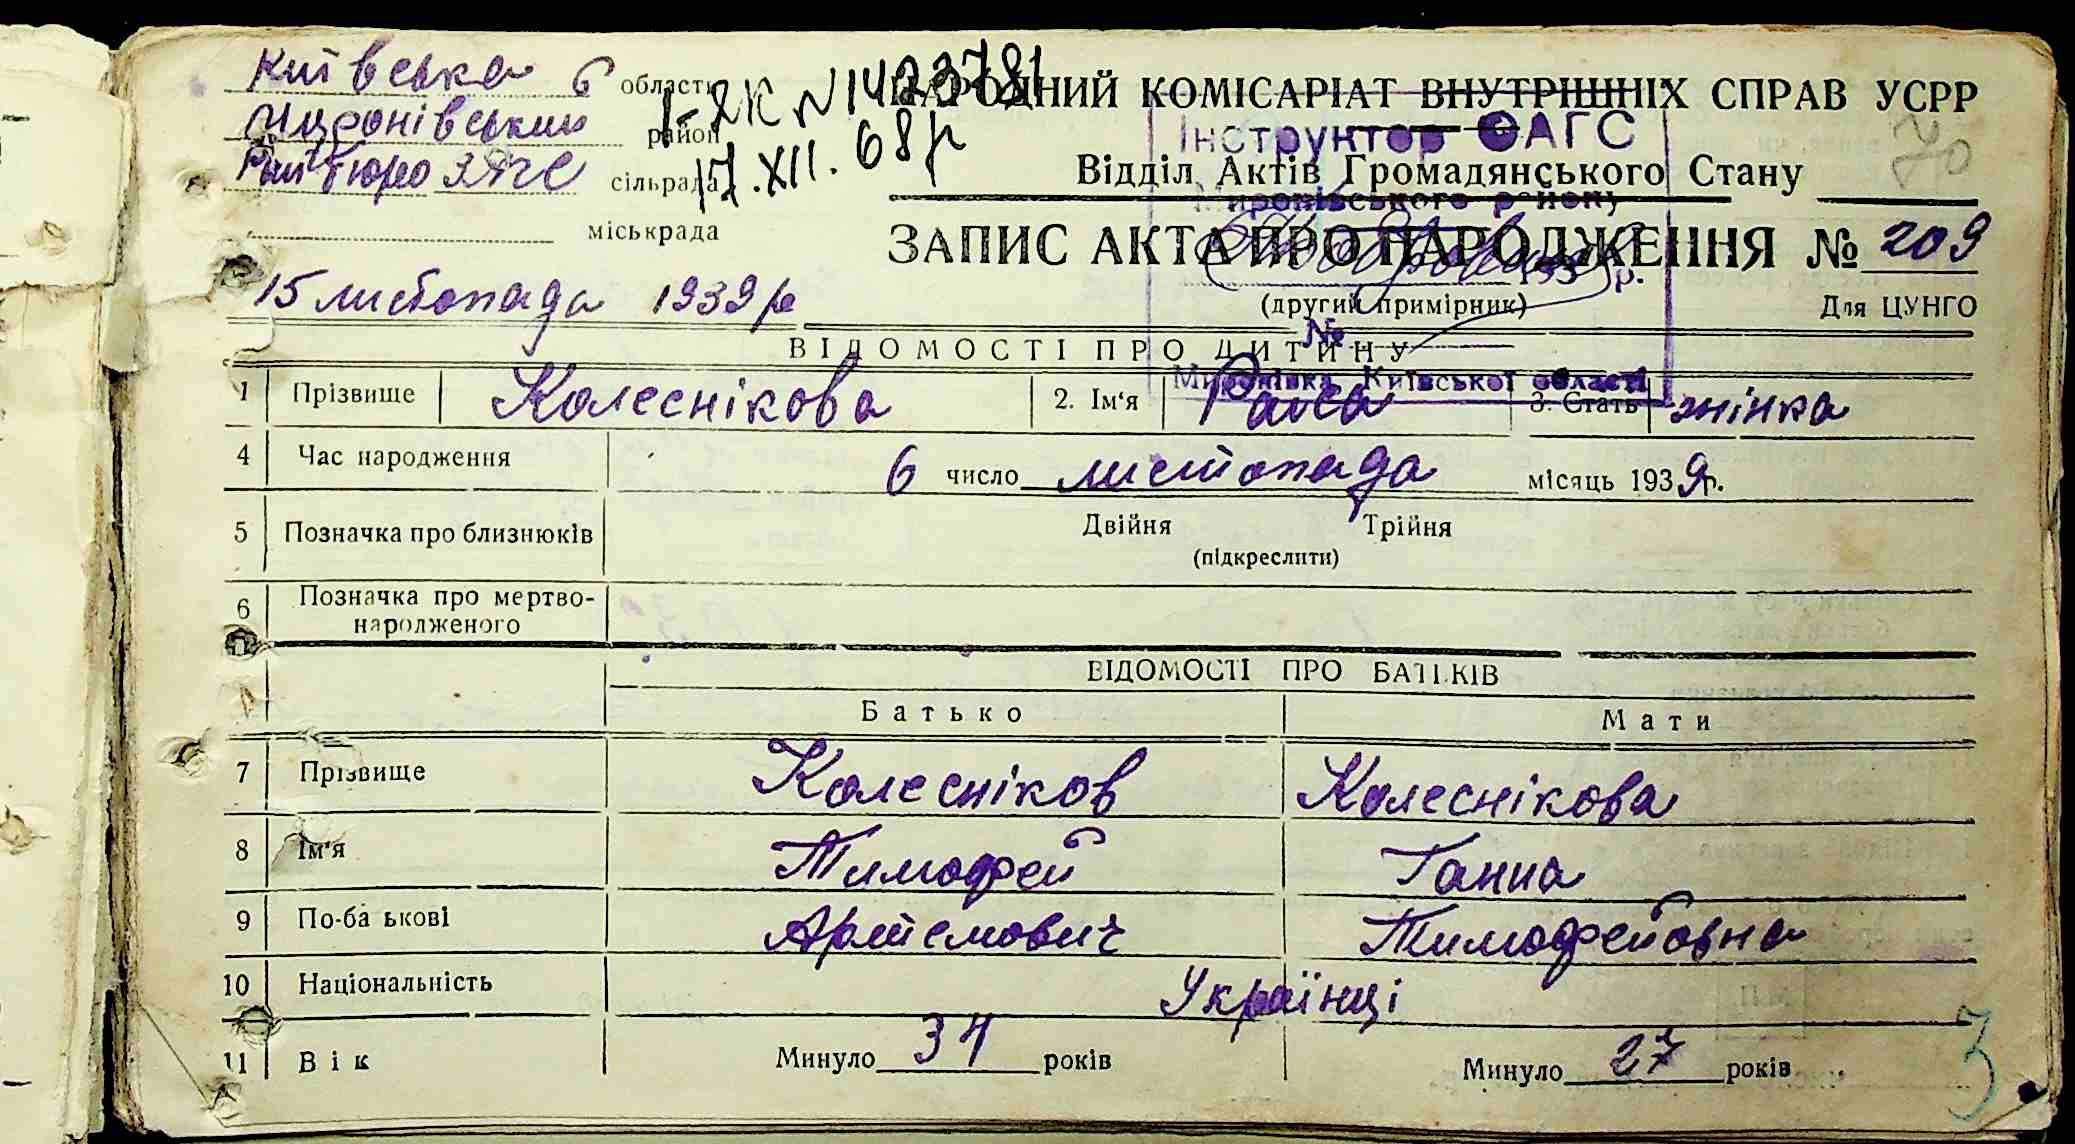 Київська область
НАРОДНИЙ КОМІСАРІАТ ВНУТРІШНІХ СПРАВ УСРР
Миронівський район
Відділ Актів Громадянського Стану
Рай бюро ЗАГС сільрада
міськрада
1-ЯК №1423781
17.XII.68р
Інструктор ОАГС
Миронівського району
№
Миронівка, Київської області
70
ЗАПИС АКТА ПРО НАРОДЖЕННЯ № 209
193 р.
15 листопада 1939 р
(другий примірник)
Для ЦУНГО
ВІДОМОСТІ ПРО ДИТИНУ
1 Прізвище Колеснікова 2. Ім'я Раиса 3. Стать жінка
4 Час народження 6 число листопада місяць 1939р.
5 Позначка про близнюків Двійня Трійня
(підкреслити)
6 Позначка про мертво-
народженого
ВІДОМОСТІ ПРО БАТЬКІВ
Батько Мати
7 Прізвище Колесніков Колеснікова
8 Ім'я Тимофей Ганна
9 По-ба ькові Артемович Тимофейовна
10 Національність Українці
11 Вік Минуло 34 років Минуло 27 років
3